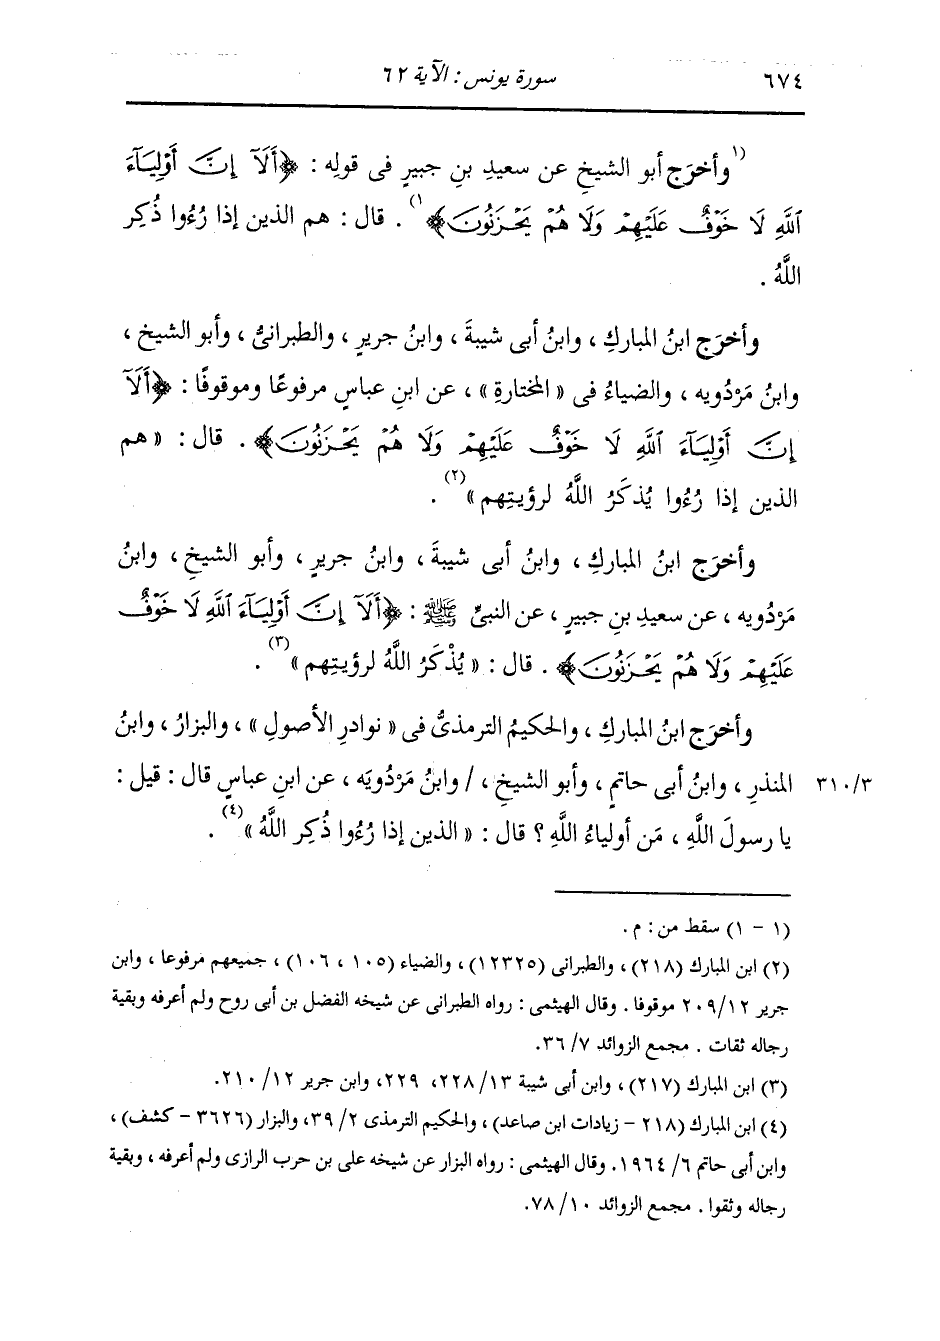 ٦٧٤
سورة يونس : الآية ٦٢
(١وأخرَج أبو الشيخِ عن سعيدِ بنِ جبيرٍ فى قولِه : ﴿أَلَآ إِنَّ أَوْلِيَآءَ
ٱللَّهِ لَا خَوْفٌ عَلَيْهِمْ وَلَا هُمْ يَحْزَنُونَ﴾١) . قال : هم الذين إذا رُءُوا ذُكِر
اللَّهُ .
وأخرَج ابنُ المباركِ ، وابنُ أبى شيبةَ ، وابنُ جريرٍ ، والطبرانىُّ ، وأبو الشيخِ ،
وابنُ مَرْدُويه ، والضياءُ فى « المختارةِ » ، عن ابنِ عباسٍ مرفوعًا وموقوفًا : ﴿أَلَآ
إِنَّ أَوْلِيَآءَ ٱللَّهِ لَا خَوْفٌ عَلَيْهِمْ وَلَا هُمْ يَحْزَنُونَ﴾ . قال : « هم
الذين إذا رُءُوا يُذكَرُ اللَّهُ لرؤيتِهم »(٢) .
وأخرَج ابنُ المباركِ ، وابنُ أبى شيبةَ ، وابنُ جريرٍ ، وأبو الشيخِ ، وابنُ
مَرْدُويه ، عن سعيدِ بنِ جبيرٍ ، عن النبىِّ ﷺ : ﴿أَلَآ إِنَّ أَوْلِيَآءَ ٱللَّهِ لَا خَوْفٌ
عَلَيْهِمْ وَلَا هُمْ يَحْزَنُونَ﴾ . قال : « يُذْكَرُ اللَّهُ لرؤيتِهم »(٣) .
وأخرَج ابنُ المباركِ ، والحكيمُ الترمذىُّ فى « نوادرِ الأصولِ » ، والبزارُ ، وابنُ
المنذرِ ، وابنُ أبى حاتمٍ ، وأبو الشيخِ ، / وابنُ مَرْدُويَه ، عن ابنِ عباسٍ قال : قيل : ٣١٠/٣
يا رسولَ اللَّهِ ، مَن أولياءُ اللَّهِ ؟ قال : « الذين إذا رُءُوا ذُكِر اللَّهُ »(٤) .
(١ - ١) سقط من : م .
(٢) ابن المبارك (٢١٨) ، والطبرانى (١٢٣٢٥) ، والضياء (١٠٥ ، ١٠٦) ، جميعهم مرفوعا ، وابن
جرير ٢٠٩/١٢ موقوفا . وقال الهيثمى : رواه الطبرانى عن شيخه الفضل بن أبى روح ولم أعرفه وبقية
رجاله ثقات . مجمع الزوائد ٣٦/٧.
(٣) ابن المبارك (٢١٧) ، وابن أبى شيبة ٢٢٨/١٣، ٢٢٩، وابن جرير ٢١٠/١٢.
(٤) ابن المبارك (٢١٨ - زيادات ابن صاعد) ، والحكيم الترمذى ٣٩/٢، والبزار (٣٦٢٦ - كشف) ،
وابن أبى حاتم ١٩٦٤/٦. وقال الهيثمى : رواه البزار عن شيخه على بن حرب الرازى ولم أعرفه ، وبقية
رجاله وثقوا . مجمع الزوائد ٧٨/١٠.